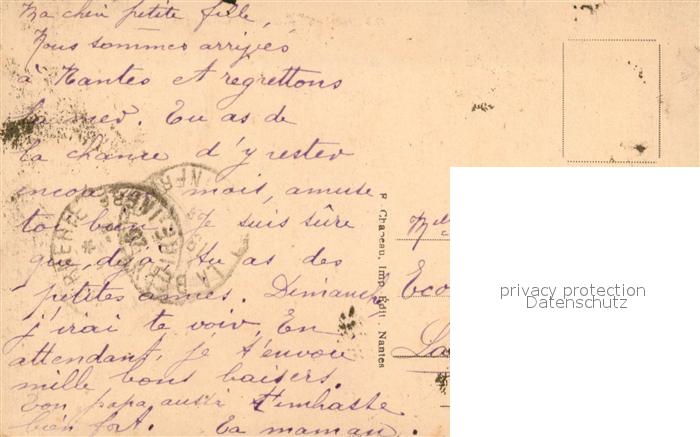 Ma chère petite fille,
Nous sommes arrivés
à Nantes et regrettons
la mer. Tu as de
la chance d'y rester
encore mois, amuse
toi bien. Je suis sûre
que déjà tu as des
petites amies. Dimanche
j'irai te voir, En
attendant, je t'envoie
mille bons baisers.
Ton papa aussi t'embrasse
bien fort. Ta maman.
F. Chapeau, Imp. Édit. Nantes
Mlle
Eco
La
privacy protection
Datenschutz